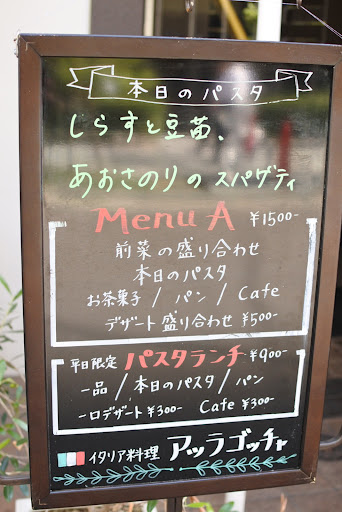 本日のパスタ
しらすと豆苗、
あおさのりの スパゲティ
Menu A ¥1500-
前菜の盛り合わせ
本日のパスタ
お茶菓子 / パン / Cafe
デザート盛り合わせ ¥500-
平日限定 パスタランチ ¥900-
一品 / 本日のパスタ / パン
一口デザート ¥300- Cafe ¥300-
イタリア料理 アッラゴッチャ